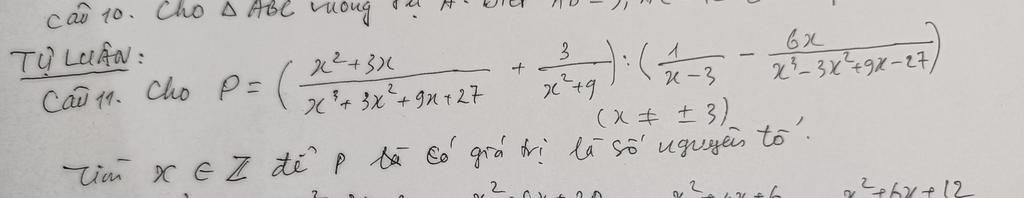 Câu 10. Cho Δ ABC vuông tại A. Biết
TỰ LUẬN:
Câu 11. Cho P = ( (x² + 3x)/(x³ + 3x² + 9x + 27) + 3/(x² + 9) ) : ( 1/(x - 3) - 6x/(x³ - 3x² + 9x - 27) )
(x ≠ ± 3)
Tìm x ∈ Z để P có giá trị là số nguyên tố.
x² + 6x + 12